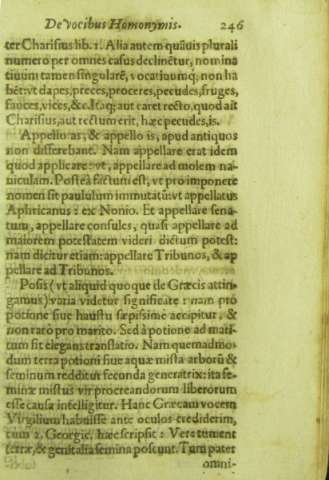 De Vocibus Homonymis. 246
ter Charisius lib. 1. Alia autem quãuis plurali
numero per omnes casus declinẽtur, nomina
tiuum tamen singularẽ, vocatiuumq; non ha
bẽt: vt dapes, preces, proceres, pecudes, fruges,
fauces, vices, &c. Itaq; aut caret recto, quod ait
Charisius, aut rectum erit, hæc pecudes, is.
Appello as, & appello is, apud antiquos
non differebant. Nam appellare erat idem
quod applicare: vt, appellare ad molem na-
uiculam. Posteà factum est, vt pro imponere
nomen sit paululum immutatũ: vt appellatus
Aphricanus: ex Nonio. Et appellare sena-
tum, appellare consules, quasi appellare ad
maiorem potestatem videri dictum potest:
nam dicitur etiam: appellare Tribunos, & ap
pellare ad Tribunos.
Posis (vt aliquid quoque de Græcis attin
gamus) varia videtur significare: nam pro
potione siue haustu sæpissime accipitur, &
non rarò pro marito. Sed à potione ad mari-
tum sit elegans translatio. Nam quemadmo-
dum terra potioni siue aquæ mista arborũ &
seminum redditur fecunda generatrix: ita se-
minæ mistus vir procreandorum liberorum
esse causa intelligitur. Hanc Græcam vocem
Virgilium habuisse ante oculos crediderim,
cum 2. Georgic. hæc scripsit: Vere tument
terræ, & genitalia semina poscunt. Tum pater
omni-